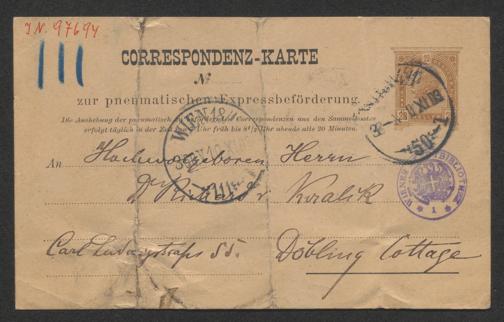 I.N. 97694
III
CORRESPONDENZ-KARTE
№
zur pneumatischen Expressbeförderung.
Die Aushebung der pneumatisch zu befördernden Correspondenzen aus den Sammelkasten
erfolgt täglich in der Zeit Uhr früh bis 8½ Uhr abends alle 20 Minuten.
WIEN
An Hochwolgeboren Herrn
Dr Richard v Kralik
WIENER STADTBIBLIOTHEK
* 1 *
Carl Ludwigstrasse 55. Döbling Cottage